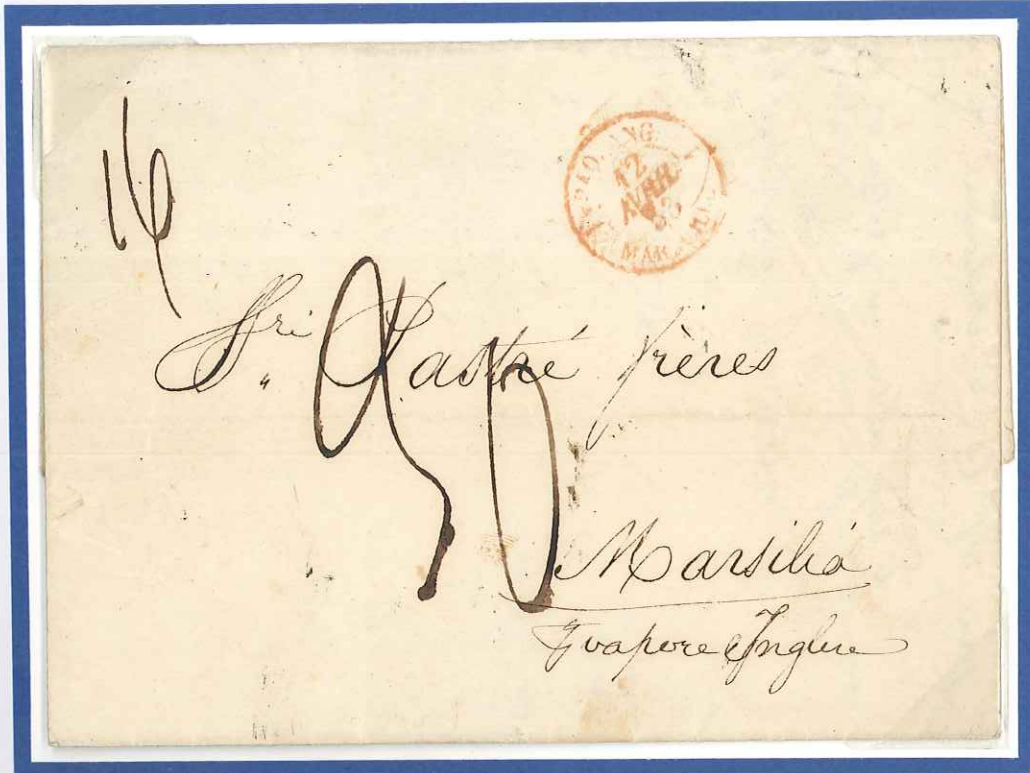 16
12
AVRIL
53
MARSEILLE
Sri. Pastré frères
90
Marsilia
P vapore Inglese